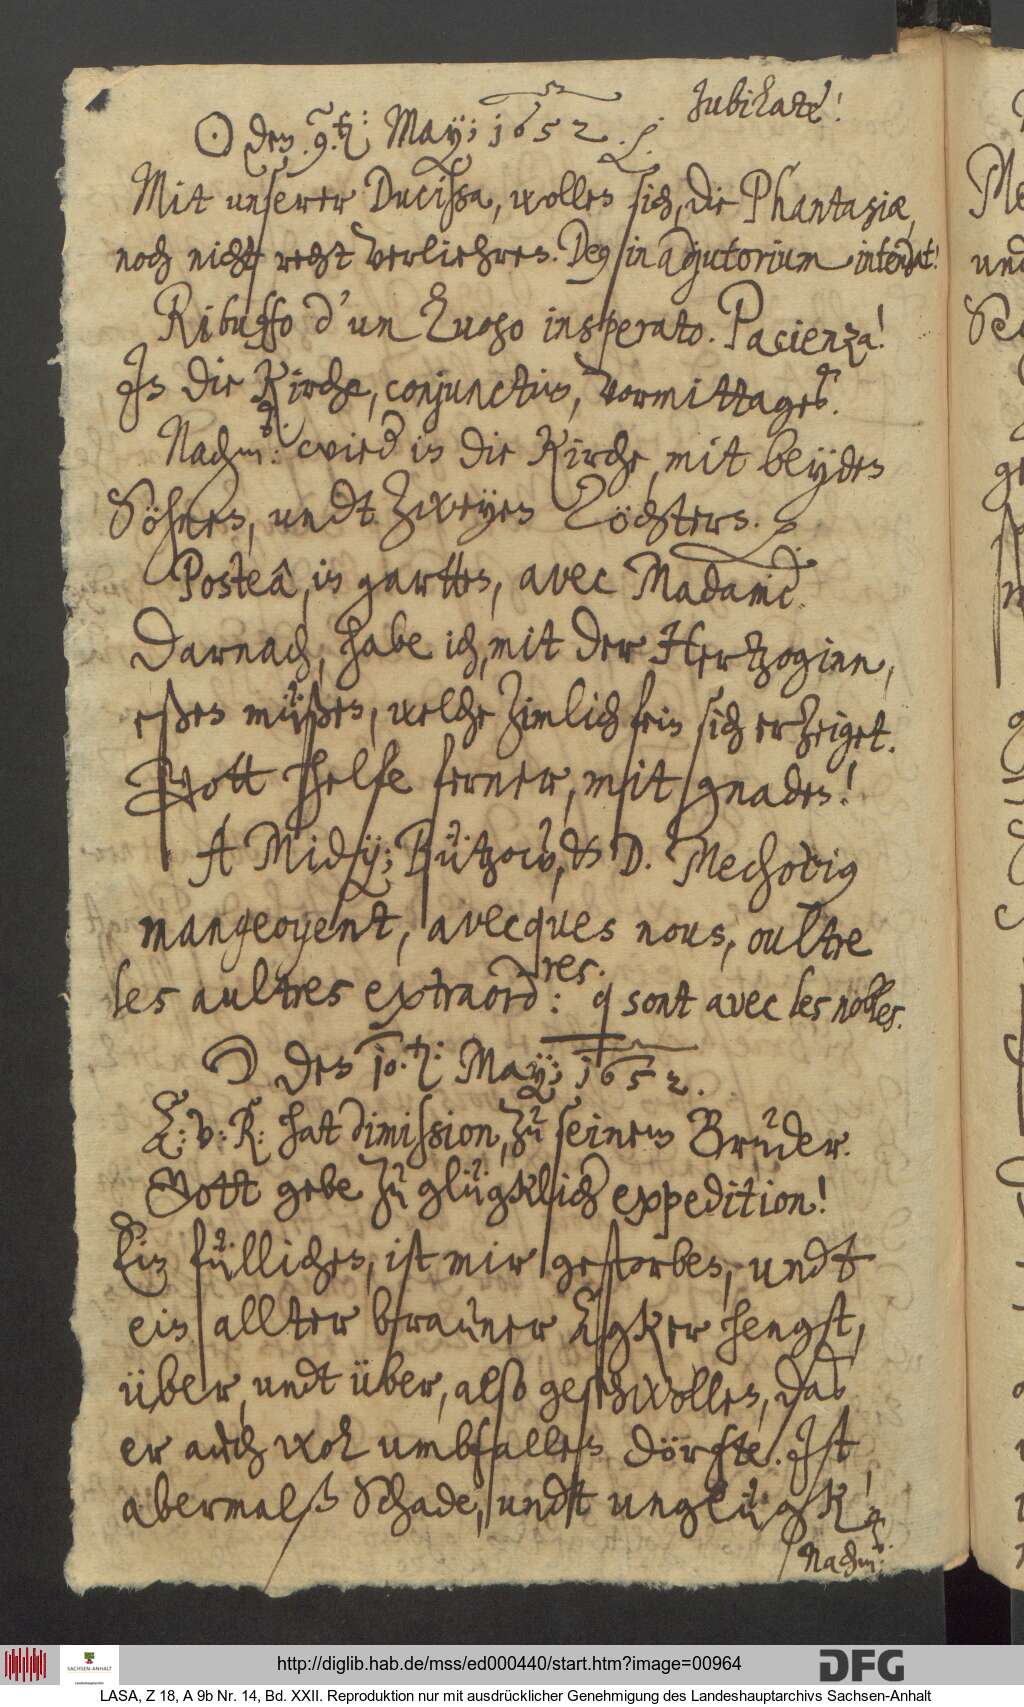 Jubilate!
☉ den .9.ten: May; 1652.
Mit unserer Ducissa, wollen sich, die Phantasiæ,
noch nicht recht verliehren. Deus in adjutorium intendat!
Ribuffo d'un Luogo insperato. Pacienza!
In die Kirche, conjunctim, vormittages.
Nachm: wied in die Kirche, mit beyden
Söhnen, undt Zweyen Töchtern.
Posteâ, in gartten, avec Madame.
Darnach, habe ich, mit der Hertzoginn,
eßen müßen, welche Zimlich fein sich erzeiget.
Gott helfe ferner, mit gnaden!
A Midy; Bützow, & D. Mechovius
mangeoyent, avecques nous, oultre
les aultres extraord:res. q sont avec les nobles.
☽ den 10.ten: May; 1652.
L: v: K: hat dimission, zu seinem Bruder.
Gott gebe zu glügklich expedition!
Ein fülliches, ist mir gestorben, undt
ein allter brauner Egker hengst,
über, undt über, also geschwollen, das
er auch wol umbfallen dörfte. Ist
abermalß Schade, undt unglügk!
Nachm:
http://diglib.hab.de/mss/ed000440/start.htm?image=00964
SACHSEN-ANHALT
DFG
LASA, Z 18, A 9b Nr. 14, Bd. XXII. Reproduktion nur mit ausdrücklicher Genehmigung des Landeshauptarchivs Sachsen-Anhalt